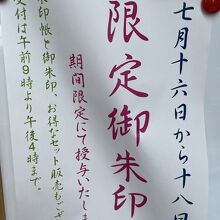 七月十六日から十八日
限定御朱印
期間限定にて授与いたしま
朱印帳と御朱印、お得なセット販売もござ
受付は午前9時より午後4時まで。